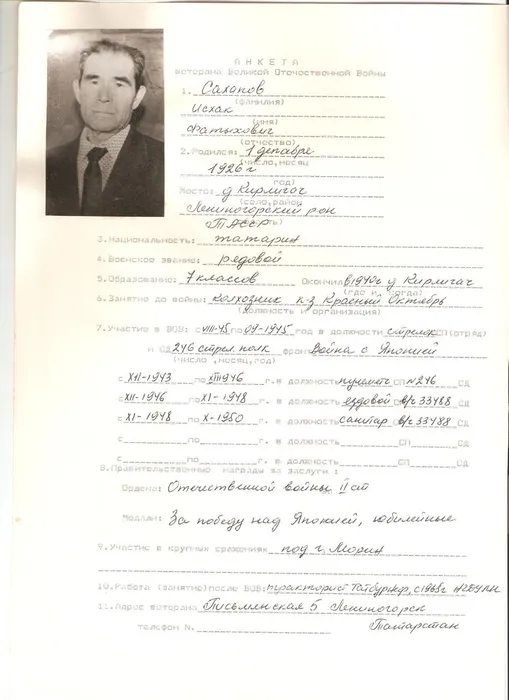 АНКЕТА
ветерана Великой Отечественной Войны
1. Сахапов
(фамилия)
Исхак
(имя)
Фатыхович
(отчество)
2.Родился: 1 декабря
(число,месяц
1926 г
год)
Место: д Кирлигач
(село,район
Лениногорский рон
ТАССР
3.Национальность: татарин
4.Воинское звание: рядовой
5.Образование: 7 классов Окончил в 1940г д Кирлигач
(где и когда)
6.Занятие до войны: колхозник к-з Красный Октябрь
(должность и организация)
7.Участие в ВОВ: с VIII-45 по 09-1945 год в должности стрелок СП(отряд)
и СД 246 стрел. полк фронт Война с Японией
(число ,месяц,год)
с XII-1943 по XII 1946 г. в должность СП N 246 СД
с XII-1946 по XI-1948 г. в должность ездовой в/ч 33488 СД
с XI-1948 по X-1950 г. в должность санитар в/ч 33488 СД
с по г. в должность СП СД
с по г. в должность СП СД
8.Правительственные награды за заслуги :
Ордена: Отечественной войны II ст
Медали: За победу над Японией, юбилейные
9.Участие в крупных сражениях под г.
10.Работа (занятие)после ВОВ: тракторист
11.Адрес ветерана Письмянская 5 Лениногорск
телефон N. Татарстан